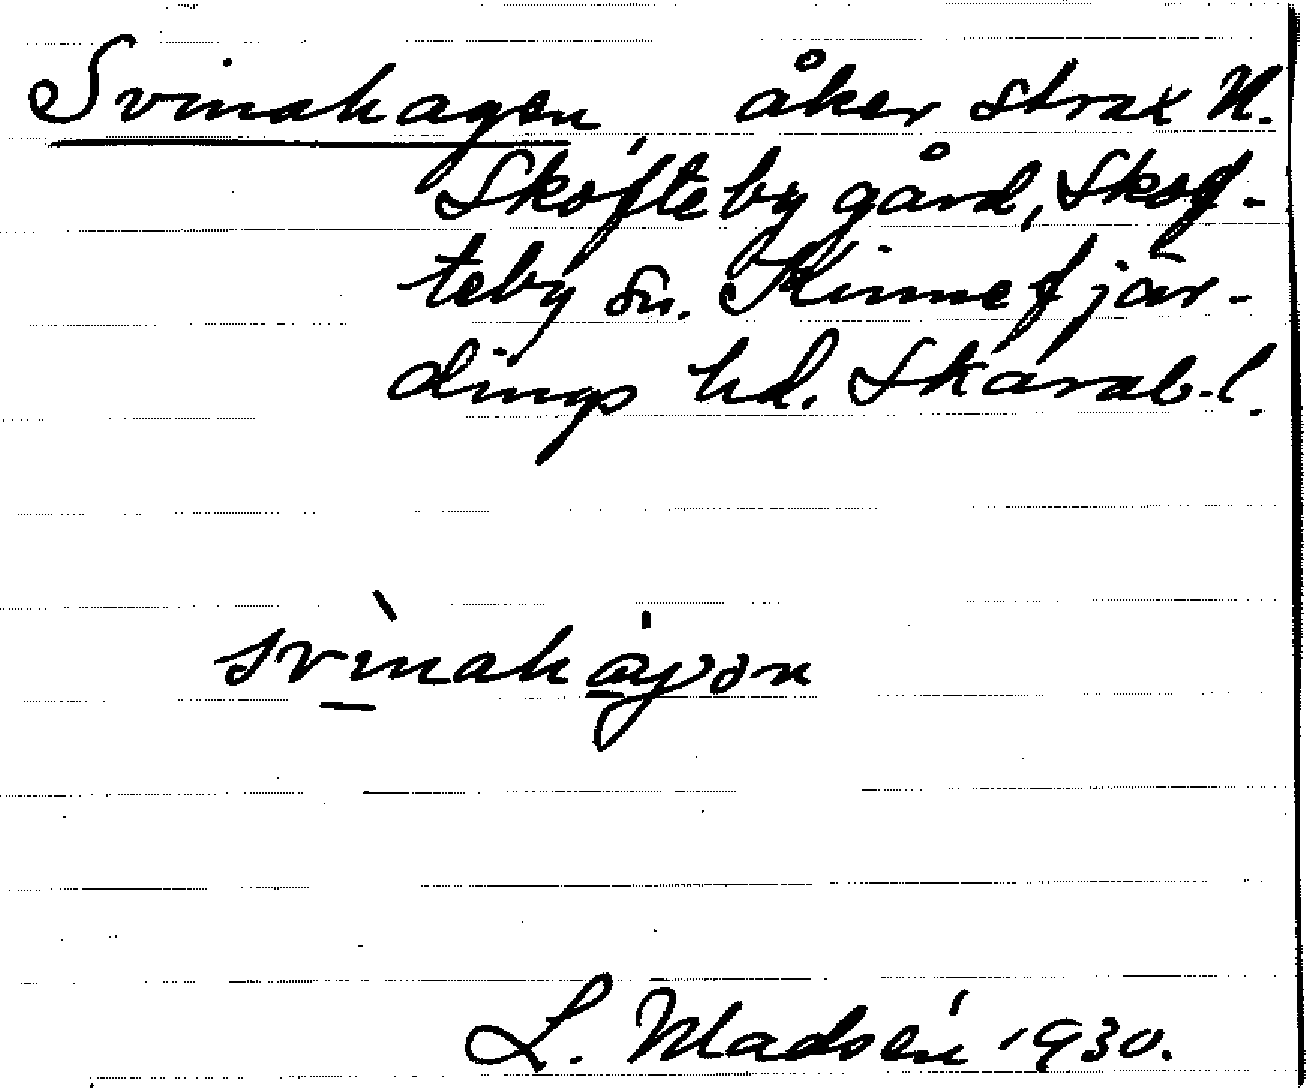 Svinahagen, åker strax N.
Skofteby gård, Skof-
teby sn. Kinnefjär-
dings hd. Skarab. l.
svinahagon
L. Madsén 1930.